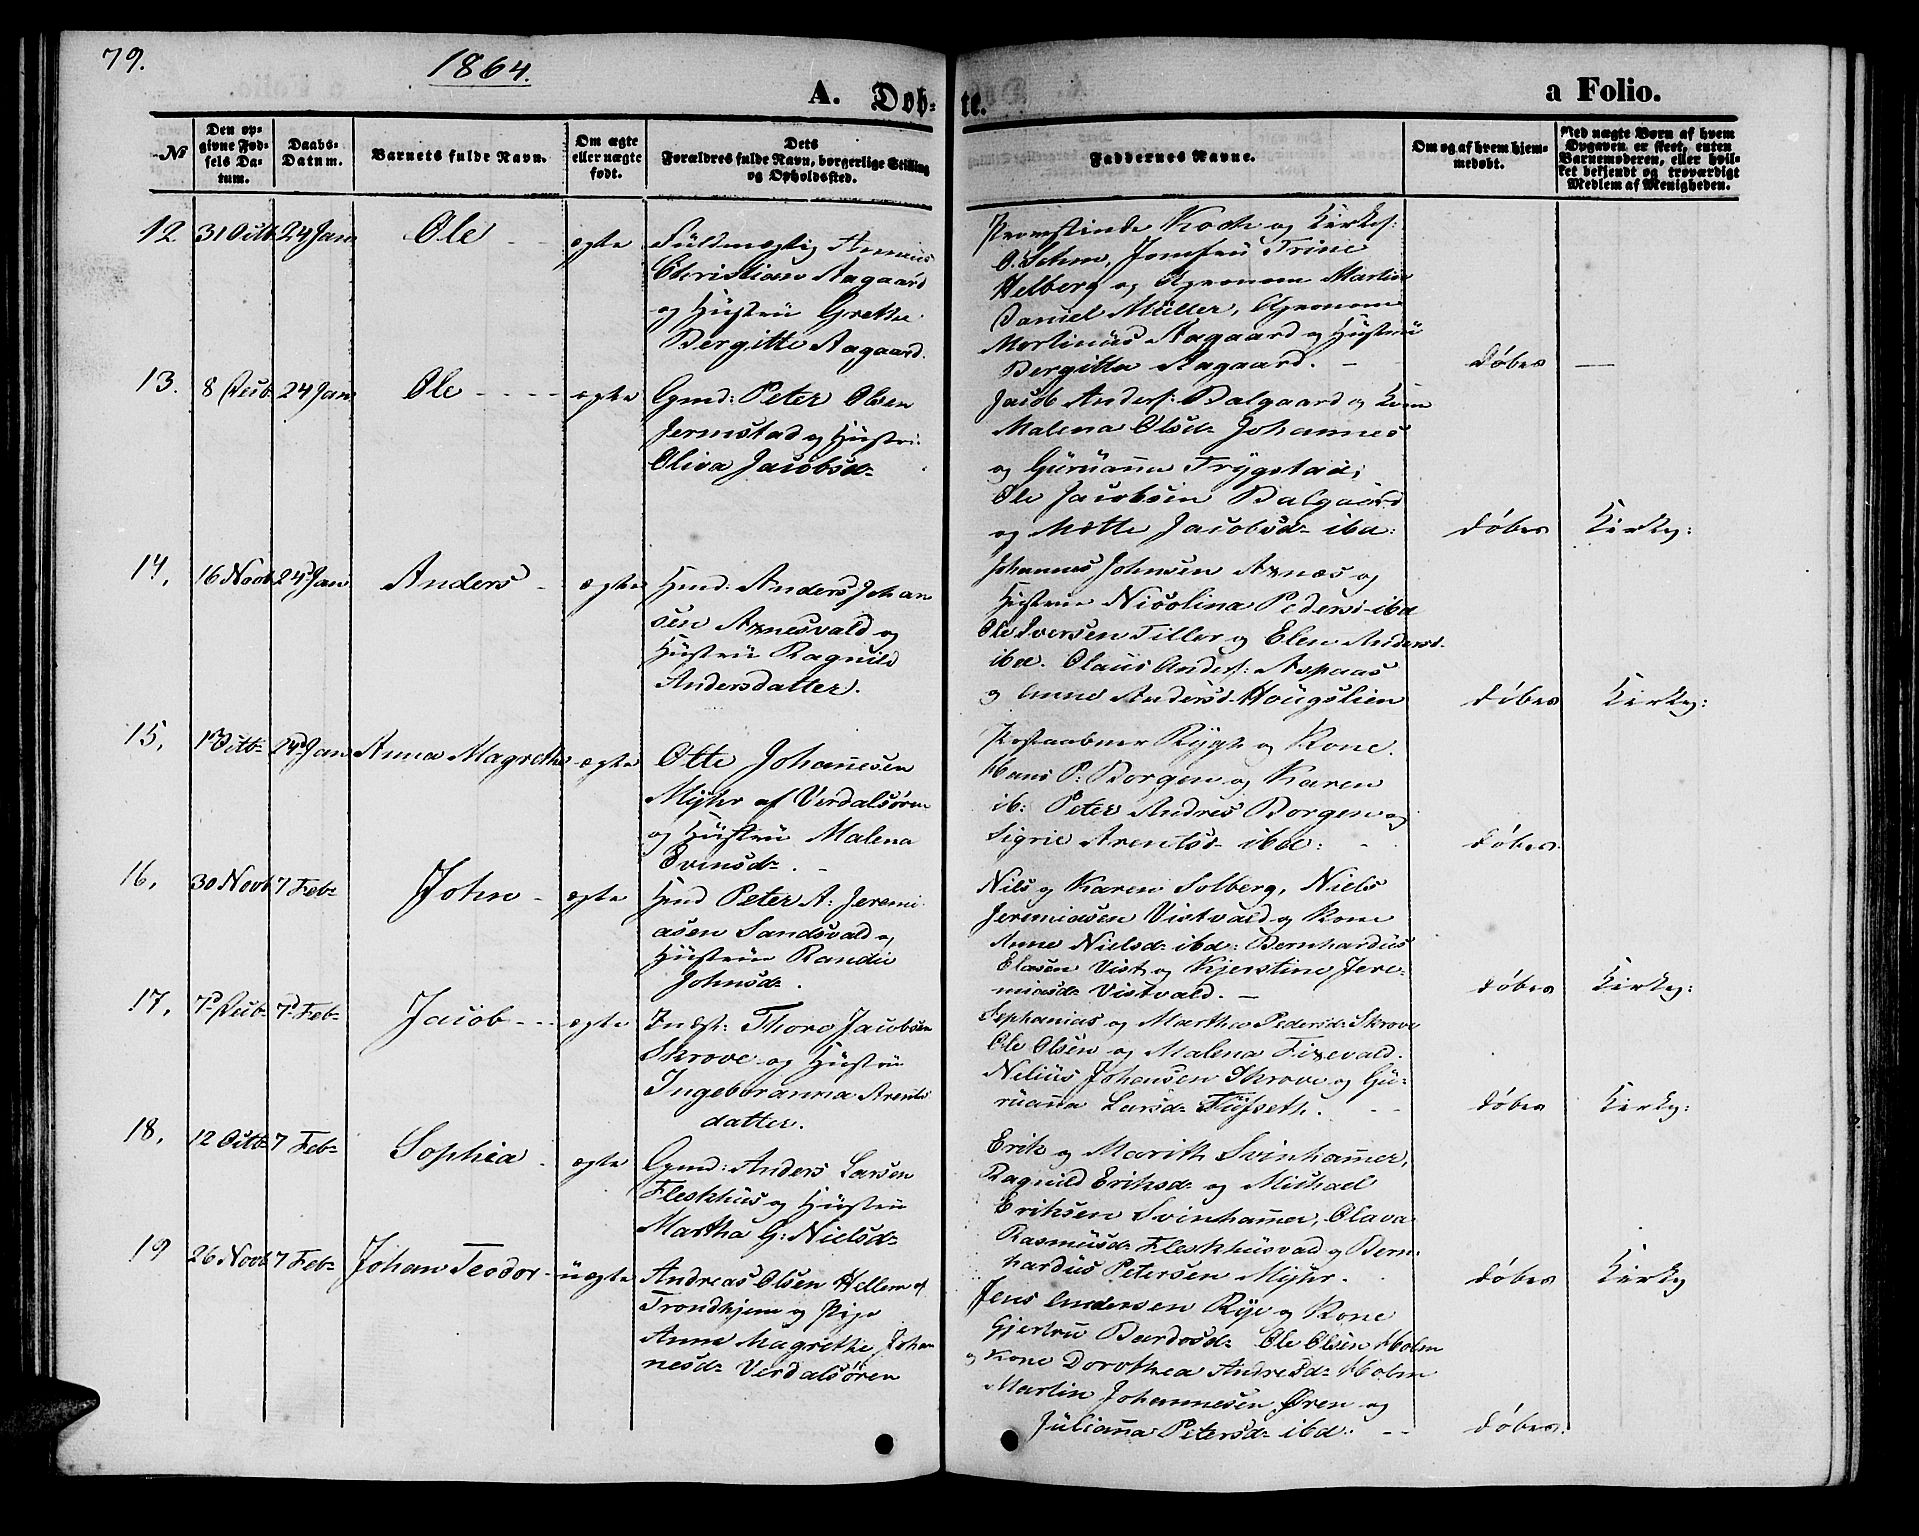 79.
1864.
A. Døb-
te.
a Folio.
No
Den op-
givne Fød-
sels Da-
tum.
Daabs-
Datum.
Barnets fulde Navn.
Om ægte
eller uægte
født.
Dets
Forældres fulde Navn, borgerlige Stilling
og Opholdssted.
Faddernes Navne.
Om og af hvem hjem-
medøbt.
Ved uægte Børn af hvem
Opgaven er skeet, enten
Barnemoderen, eller hvil-
ket bekjendt og troværdigt
Medlem af Menigheden.
12 31 Octb 24 Jan Ole ægte
Fuldmægtig
Christian Aagaard
og Hustru Grethe
Bergitte Aagaard.
Kock og Kirkes:
O. Sehm, Jomfru Trine
Helberg og Agronom Martin
Daniel Müller, Agronom
Mortinus Aagaard og Hustru
Bergitta Aagaard. -
døbes —
13. 8 Decb 24 Jan Ole ægte
Gmd: Peter Olsen
Jermstad og Hustru
Oliva Jacobsd-
Jacob Anders: Balgaard og Kone
Malena Olsd- Johannes
og Guruanna Trygstad;
Ole Jacobsen Balgaard
og Mette Jacobsd- ibd:
døbes Kirkeg:
14, 16 Novb 24 Jan Anders - ægte
Hmd: Anders Johan
sen Axnesvald og
Hustru Ragnild
Andersdatter.
Johannes Johnsen Axnæs og
Hustru Nicolina Peders- ibd
Ole Iversen Tiller og Elen Andersd.
ibd. Olaus Anders: Aspaas
og Anne Andersd Hougslien
døbes Kirkeg:
15, 13 Octb- 24 Jan Anna Magrethe ægte
Otte Johanesen
Myhr af Verdalsøren
og Hustru Malena
Svensd-. -
Postaabner Rygh og Kone.
Hans P: Borgen og Karen
ib: Peter Andres Borgen og
Sigrie Arentsd- ibd: -
døbes.
16, 30 Novb 7 Feb- John - ægte
Hmd Peter A: Jeremi
asen Sandsvald og
Hustru Randie
Johnsd-.
Nils og Karen Solberg, Niels
Jeremiasen Vistvald og Kone
Anne Nielsd- ibd: Bernhardus
Elasen Vist og Kjerstine Jere-
miasd- Vistvald. —
døbes Kirkeg:
17, 7d Decb- 7d Feb- Jacob - - - ægte
Indst: Thore Jacobsen
Skrove og Hustru
Ingeboranna Arents
datter.
Sephanias og Martha Pedersd- Skrove
Ole Olsen og Malena Fixevald.
Nelius Johansen Skrove og Gu-
ruanna Larsd- Tufseth. - -
døbes Kirkeg:
18, 12 Octb- 7 Feb- Sophia - ægte
Gmd: Anders Larsen
Fleskhus og Hustru
Martha G: Nielsd-
Erik og Marith Svinhammer,
Ragnild Eriksd- og Michael
Eriksen Svinhammer, Olava
Rasmusd- Fleskhusvald og Bern
hardus Petersen Myhr.
døbes Kirkeg
19 26 Novb 7 Feb- Johan Teodor - uægte
Andreas Olsen Hellem af
Trondhjem og Pige
Anne Magrethe Johan
nesd- Verdalsøren
Jens Andersen Rye og Kone
Gjertru Bardosd- Ole Olsen Holm
og Kone Dorothea Andresd- Holm
Martin Johannesen Øren og
Julianna Petersd- ibd. - -
døbes.